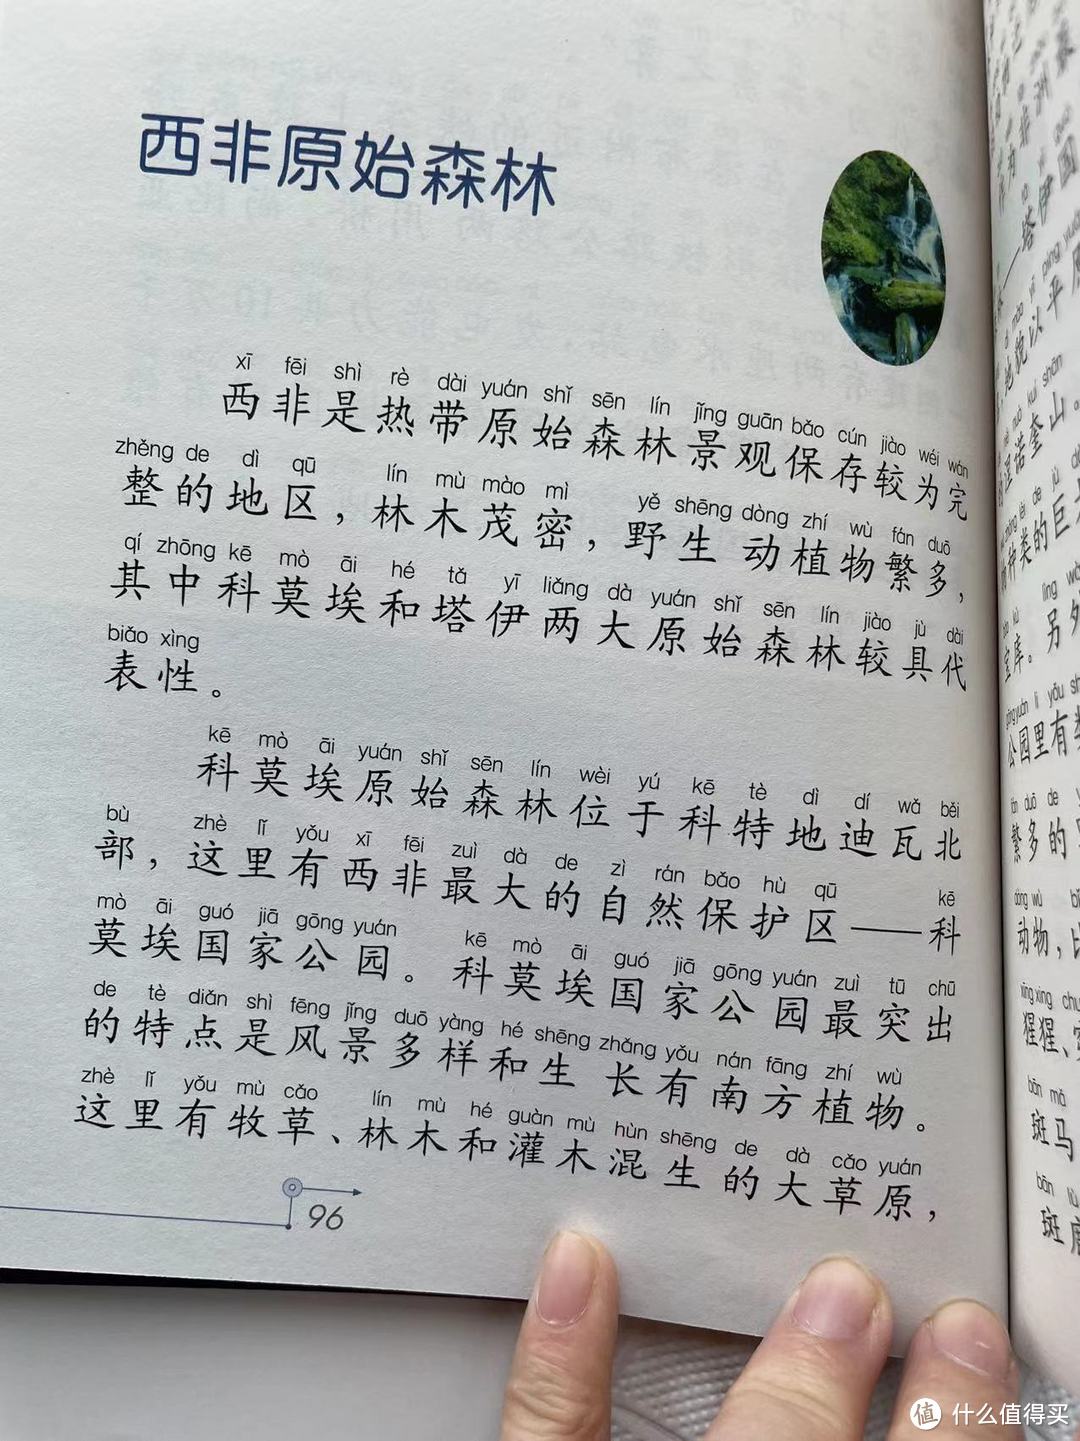 西非原始森林
xī fēi shì rè dài yuán shǐ sēn lín jǐng guān bǎo cún jiào wéi wán
西非是热带原始森林景观保存较为完
zhěng de dì qū lín mù mào mì yě shēng dòng zhí wù fán duō
整的地区，林木茂密，野生动植物繁多，
qí zhōng kē mò āi hé tǎ yī liǎng dà yuán shǐ sēn lín jiào jù dài
其中科莫埃和塔伊两大原始森林较具代
biǎo xìng
表性。
kē mò āi yuán shǐ sēn lín wèi yú kē tè dì dí wǎ běi
科莫埃原始森林位于科特地迪瓦北
bù zhè lǐ yǒu xī fēi zuì dà de zì rán bǎo hù qū kē
部，这里有西非最大的自然保护区——科
mò āi guó jiā gōng yuán kē mò āi guó jiā gōng yuán zuì tū chū
莫埃国家公园。科莫埃国家公园最突出
de tè diǎn shì fēng jǐng duō yàng hé shēng zhǎng yǒu nán fāng zhí wù
的特点是风景多样和生长有南方植物。
zhè lǐ yǒu mù cǎo lín mù hé guàn mù hùn shēng de dà cǎo yuán
这里有牧草、林木和灌木混生的大草原，
96
塔伊国
地貌以平原
诺奎山。
种类的巨
宝库。另外
gōng yuán lǐ yǒu
公园里有
繁多的
dòng wù
动物，
xīng xing
猩猩、
bān mǎ
斑马
bān
斑
值 什么值得买